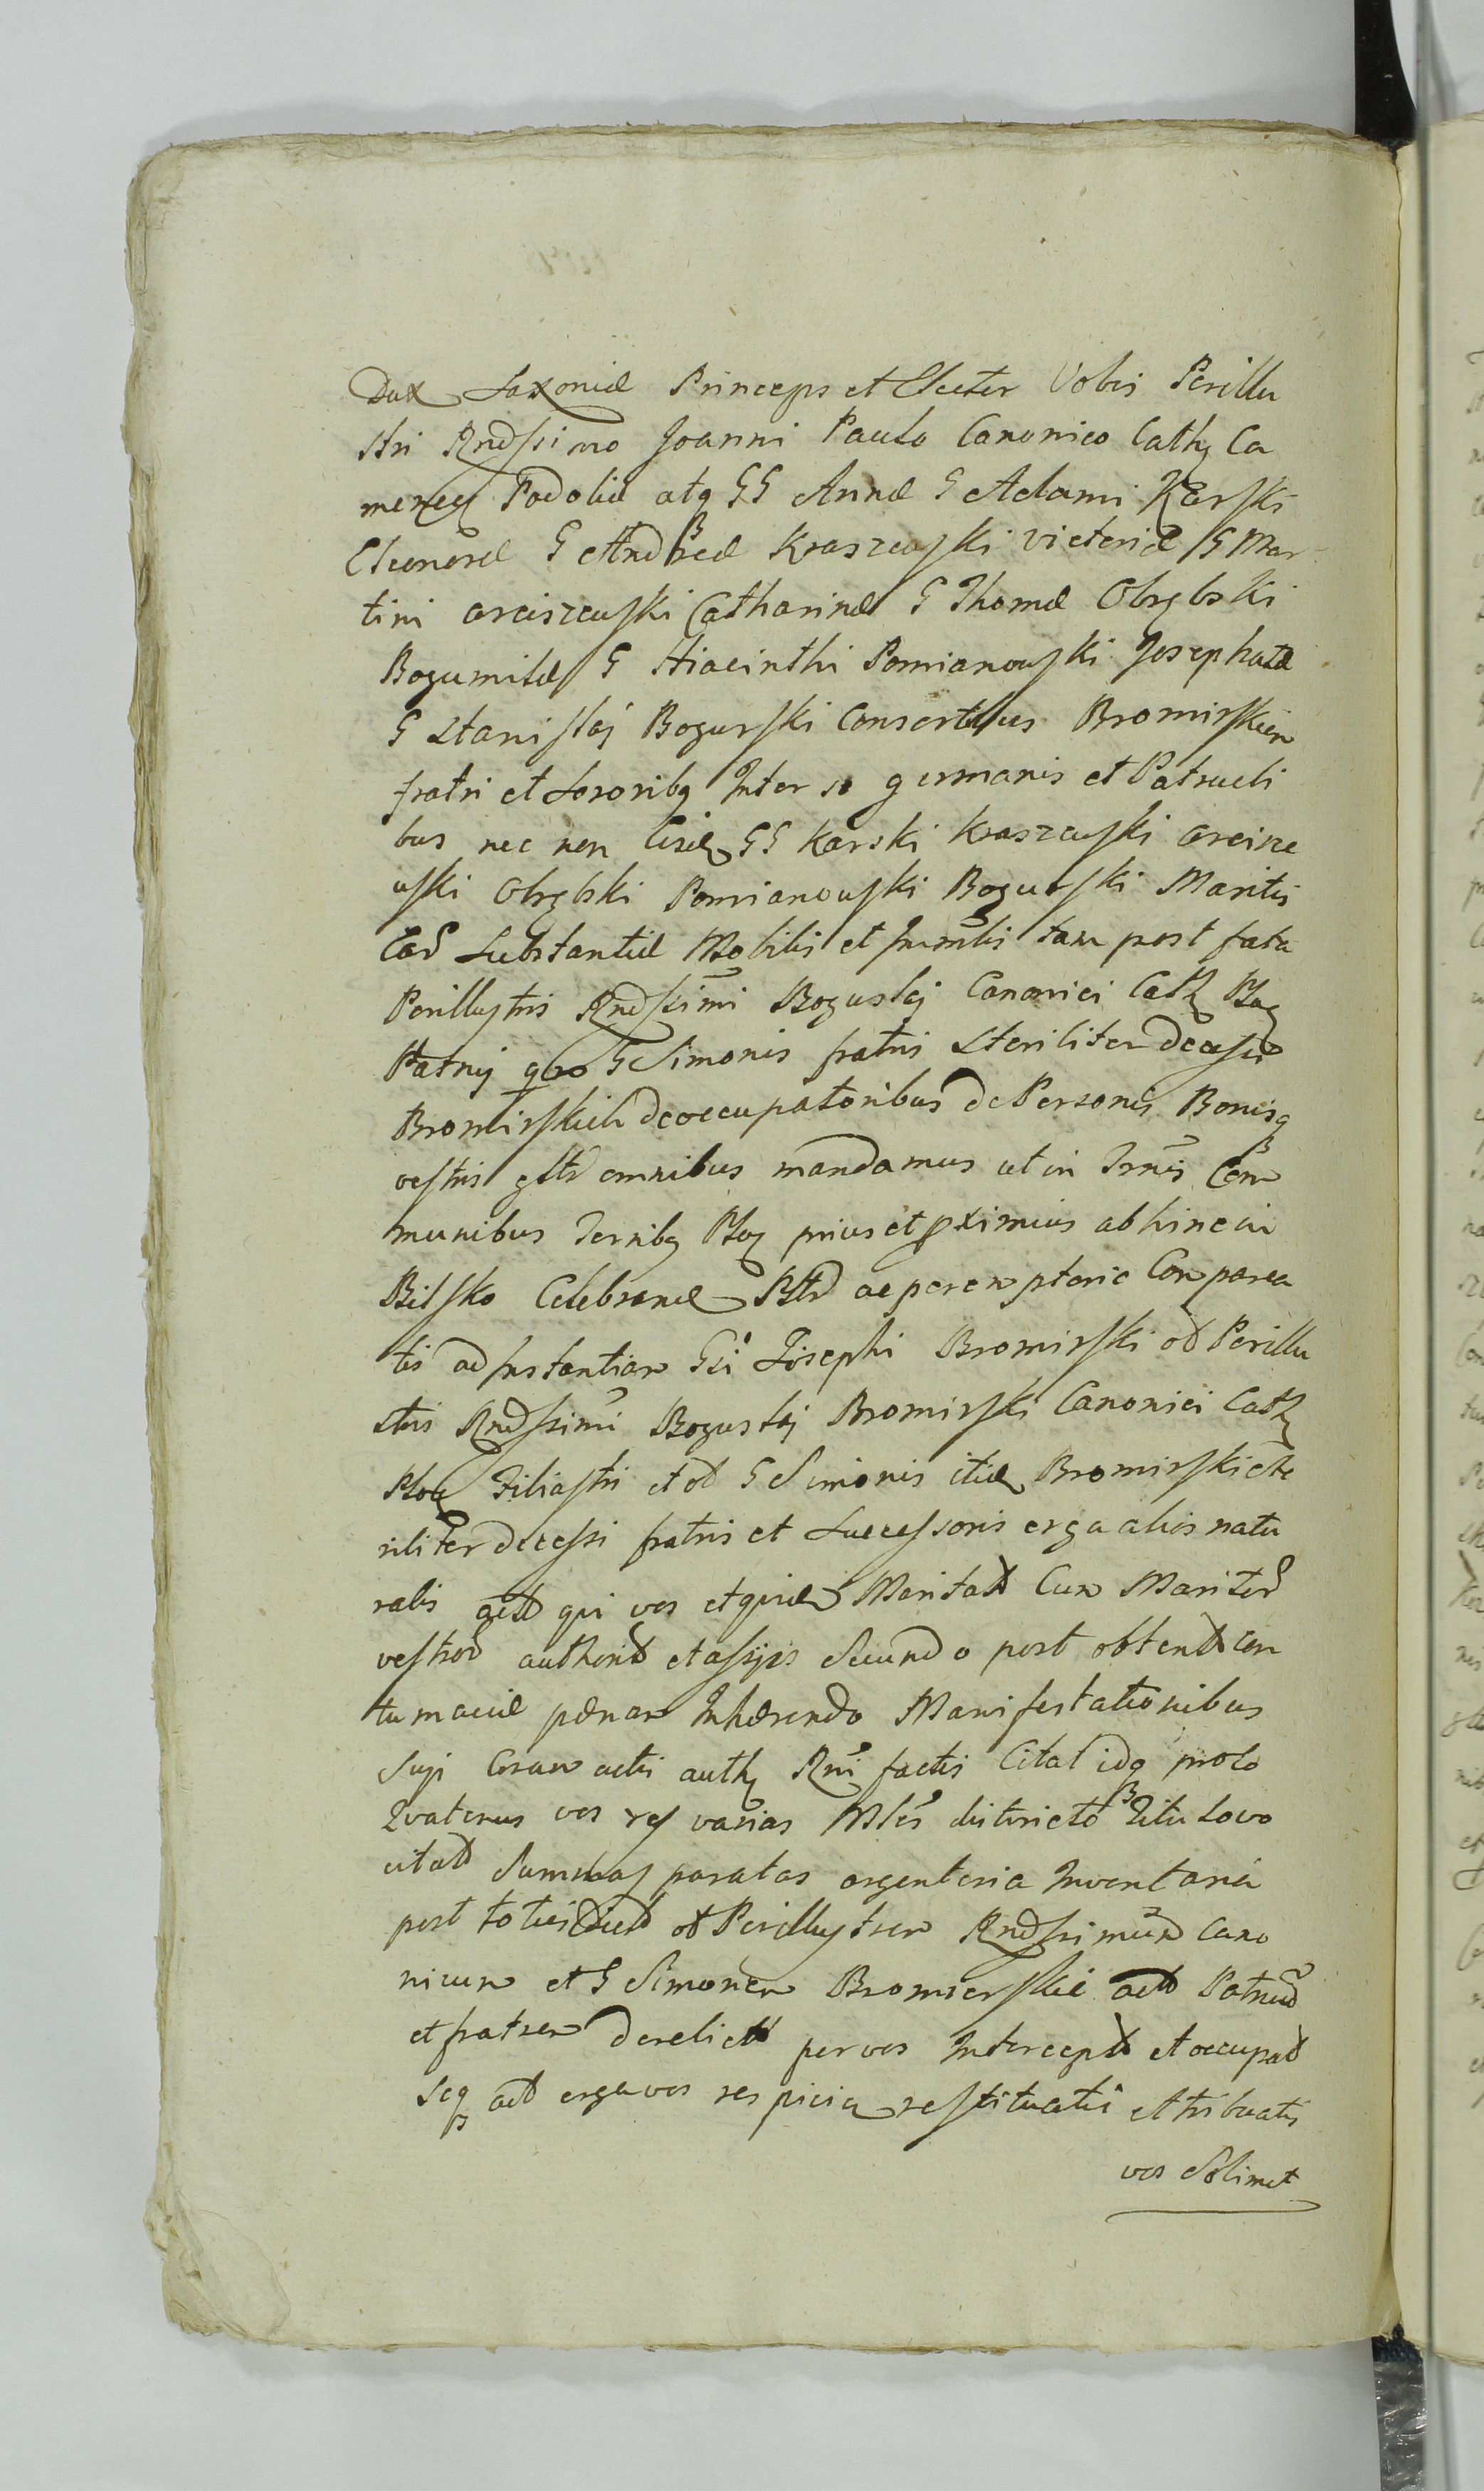 Dux Saxoniæ Princeps et Elector Vobis Perillu
stri Rndssimo Joanni Paulo Canonico Cath Ca
menec Podoliæ atq GG Annæ G Adami Karski
Eleonoræ G Andreæ Kraszewski Victoriæ G Mar
tini Arciszewski Catharinæ G Thomæ Obrębski
Bogumilæ G Hiacinthi Pomianowski Josephatæ
G Stanislaj Bogurski Consortibus Bromirskien
fratri et Sororibq Inter se germanis et Patrueli
bus nec non GG Karski Kraszewski Arcisze
wski Obrębski Pomianowski Bogurski Maritis
Ear Substantiæ Mobilis et Immblis tam post fata
Perillustris Rndssimi Boguslaj Canonici Cath
Patruj qm G Simonis fratris Steriliter decessi
Bromirskich deoccupatoribus de Personis Bonisq
vestris gltr omnibus mandamus ut in Trnis Com
munibus Ternibq prius et pximius abhinc in
Bilsko Celebran ac peremptorie Comparea
tis ad Instantiam Gsi Josephi Bromirski od Perillu
stris Rndssimi Boguslaj Bromirski Canonici Cath
Filiastri et od G Simonis itid Bromirski ste
riliter decessi fratris et Successoris erga alios natu
ralis qui vos et quid Maritat Cum Maritor
vestror authorit et assijs Secundo post obtent con
tumaciæ pænam Inhærendo Manifestationibus
Suji Coram actis auth Rni factis Citat idq prolo
Quatenus vos res varias districto Titulo vo
citat Summas paratas argenteria Inventaria
post toties dict od Perillustrem Rndssimum Cano
nicum et G Simonem Bromierski Patruum
et fratrem derelict per vos Intercept et occupat
Seq erga vos respicien restituatis et tribuatis
vos Solimet